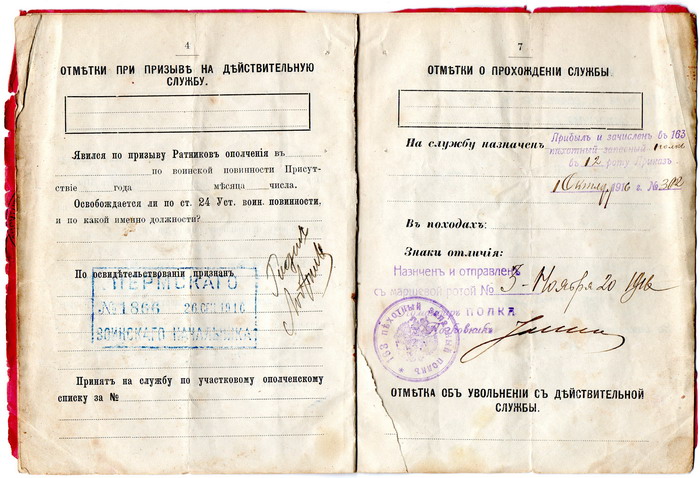 4
ОТМѢТКИ ПРИ ПРИЗЫВѢ НА ДѢЙСТВИТЕЛЬНУЮ
СЛУЖБУ.
Явился по призыву Ратниковъ ополченія въ
по воинской повинности Присут-
ствіе года мѣсяца числа.
Освобождается ли по ст. 24 Уст. воин. повинности,
и по какой именно должности?
По освидѣтельствованіи признанъ
ПЕРМСКАГО
№ 1866 26 СЕН. 1916
ВОИНСКАГО НАЧАЛЬНИКА
Принятъ на службу по участковому ополченскому
списку за №
7
ОТМѢТКИ О ПРОХОЖДЕНІИ СЛУЖБЫ.
На службу назначенъ
Прибылъ и зачисленъ въ 163
пѣхотный запасный полкъ
въ 12 роту Приказъ
1 Октяб. 1916 г. № 302
Въ походахъ:
Знаки отличія:
Назначенъ и отправленъ
съ маршевой ротой № 3 - Ноября 20 1916
ПОЛКА
Полковникъ
163 ПѢХОТНЫЙ ЗАПАСНЫЙ ПОЛКЪ
ОТМѢТКА ОБЪ УВОЛЬНЕНІИ СЪ ДѢЙСТВИТЕЛЬНОЙ
СЛУЖБЫ.